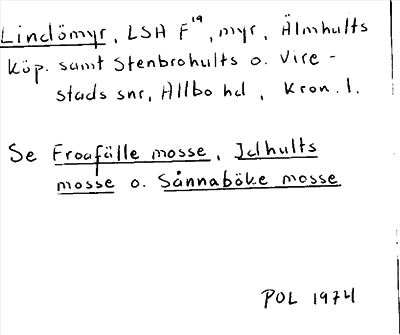 Lindömyr, LSH F¹⁹, myr, Älmhults
köp. samt Stenbrohults o. Vire-
stads snr, Allbo hd, Kron. l.
Se Froafälle mosse, Idhults
mosse o. Sånnaböke mosse
POL 1974